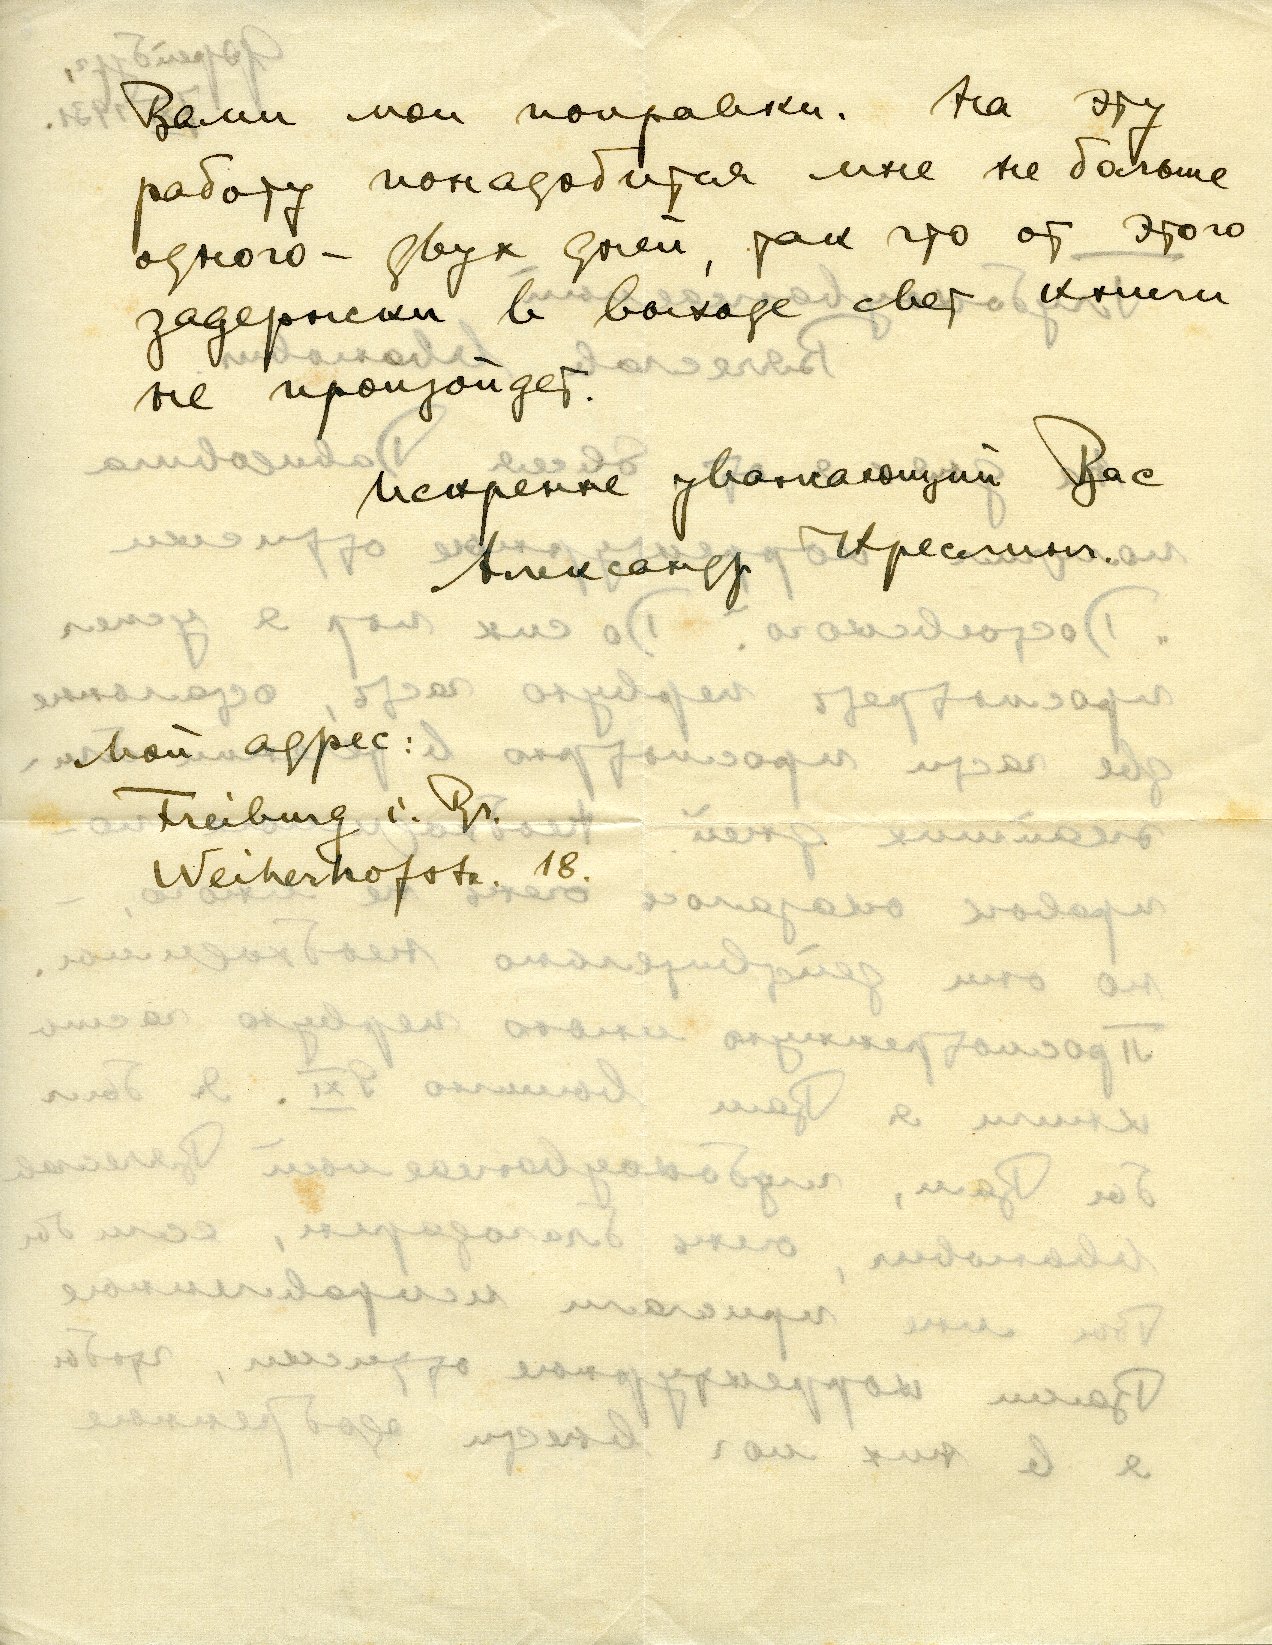 Вами мои поправки. На эту
работу понадобится мне не больше
одного – двух дней, так что от этого
задержки в выходе свет книги
не произойдет.
Искренне уважающий Вас
Александр Креслинг.
Мой адрес:
Freiburg i. Br.
Weiherhofstr. 18.